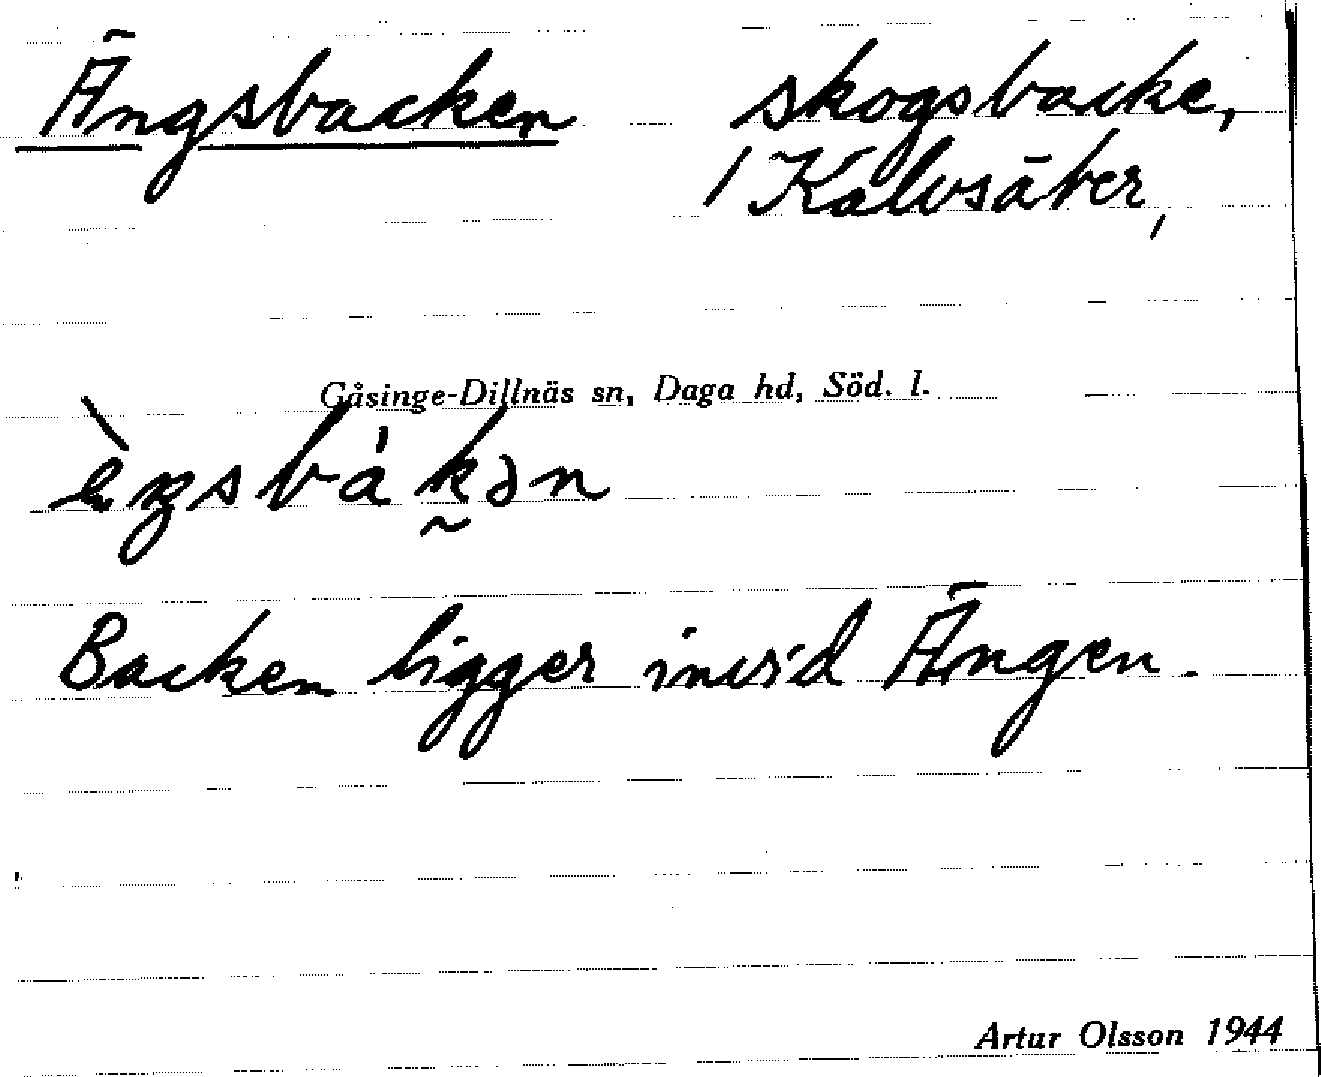 Ängsbacken skogsbacke,
/ Kalvsäter,
Gåsinge-Dillnäs sn, Daga hd, Söd. l.
Backen ligger invid Ängen.
Artur Olsson 1944